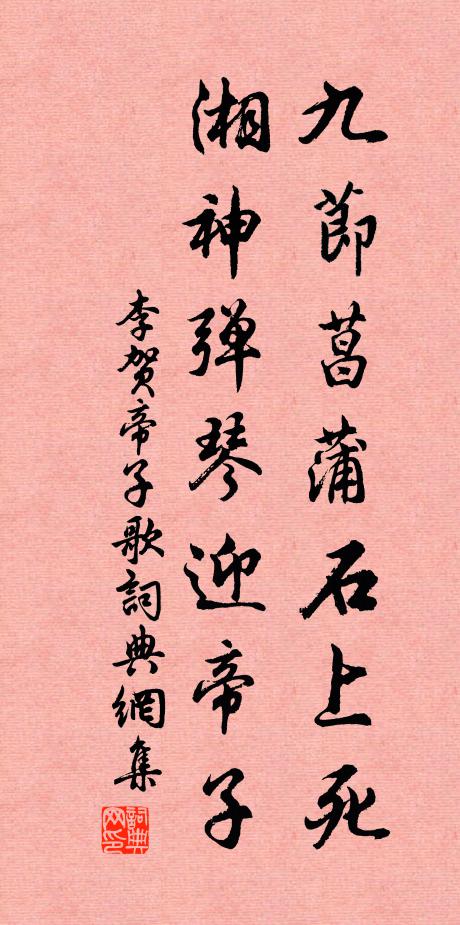 九節菖蒲石上死
湘神弹琴迎帝子
李贺帝子歌詞典網集
詞典网印